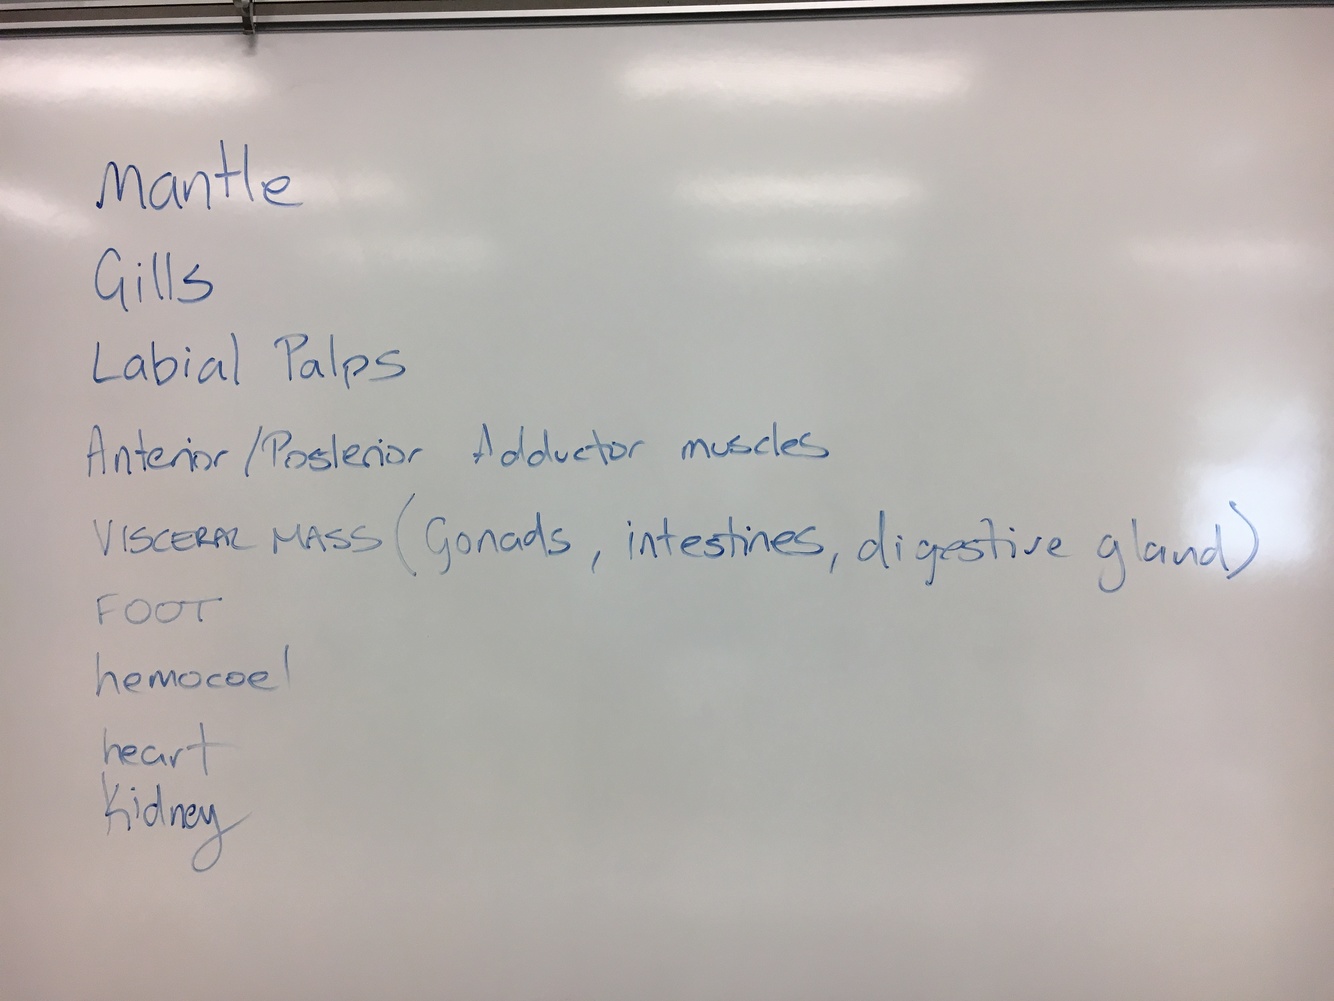 Mantle
Gills
Labial Palps
Anterior/Posterior Adductor muscles
VISCERAL MASS (Gonads, intestines, digestive gland)
FOOT
hemocoel
heart
Kidney